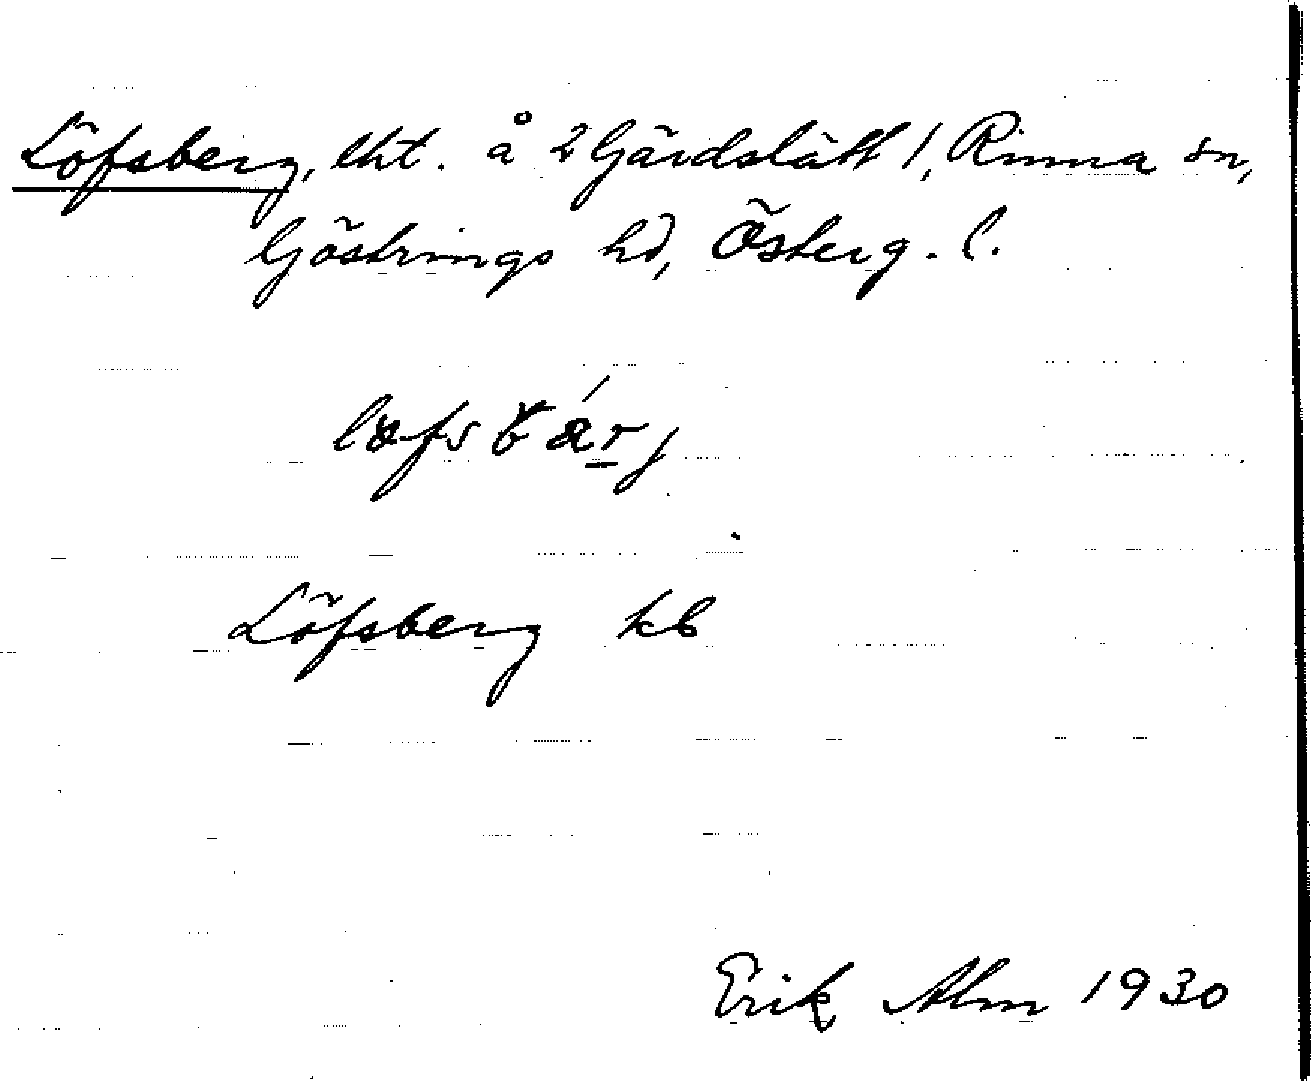 Löfsberg, lht. å 2 Gärdslätt 1, Rinna sn,
Göstrings hd, Österg. l.
Löfsberg kb
Erik Alm 1930